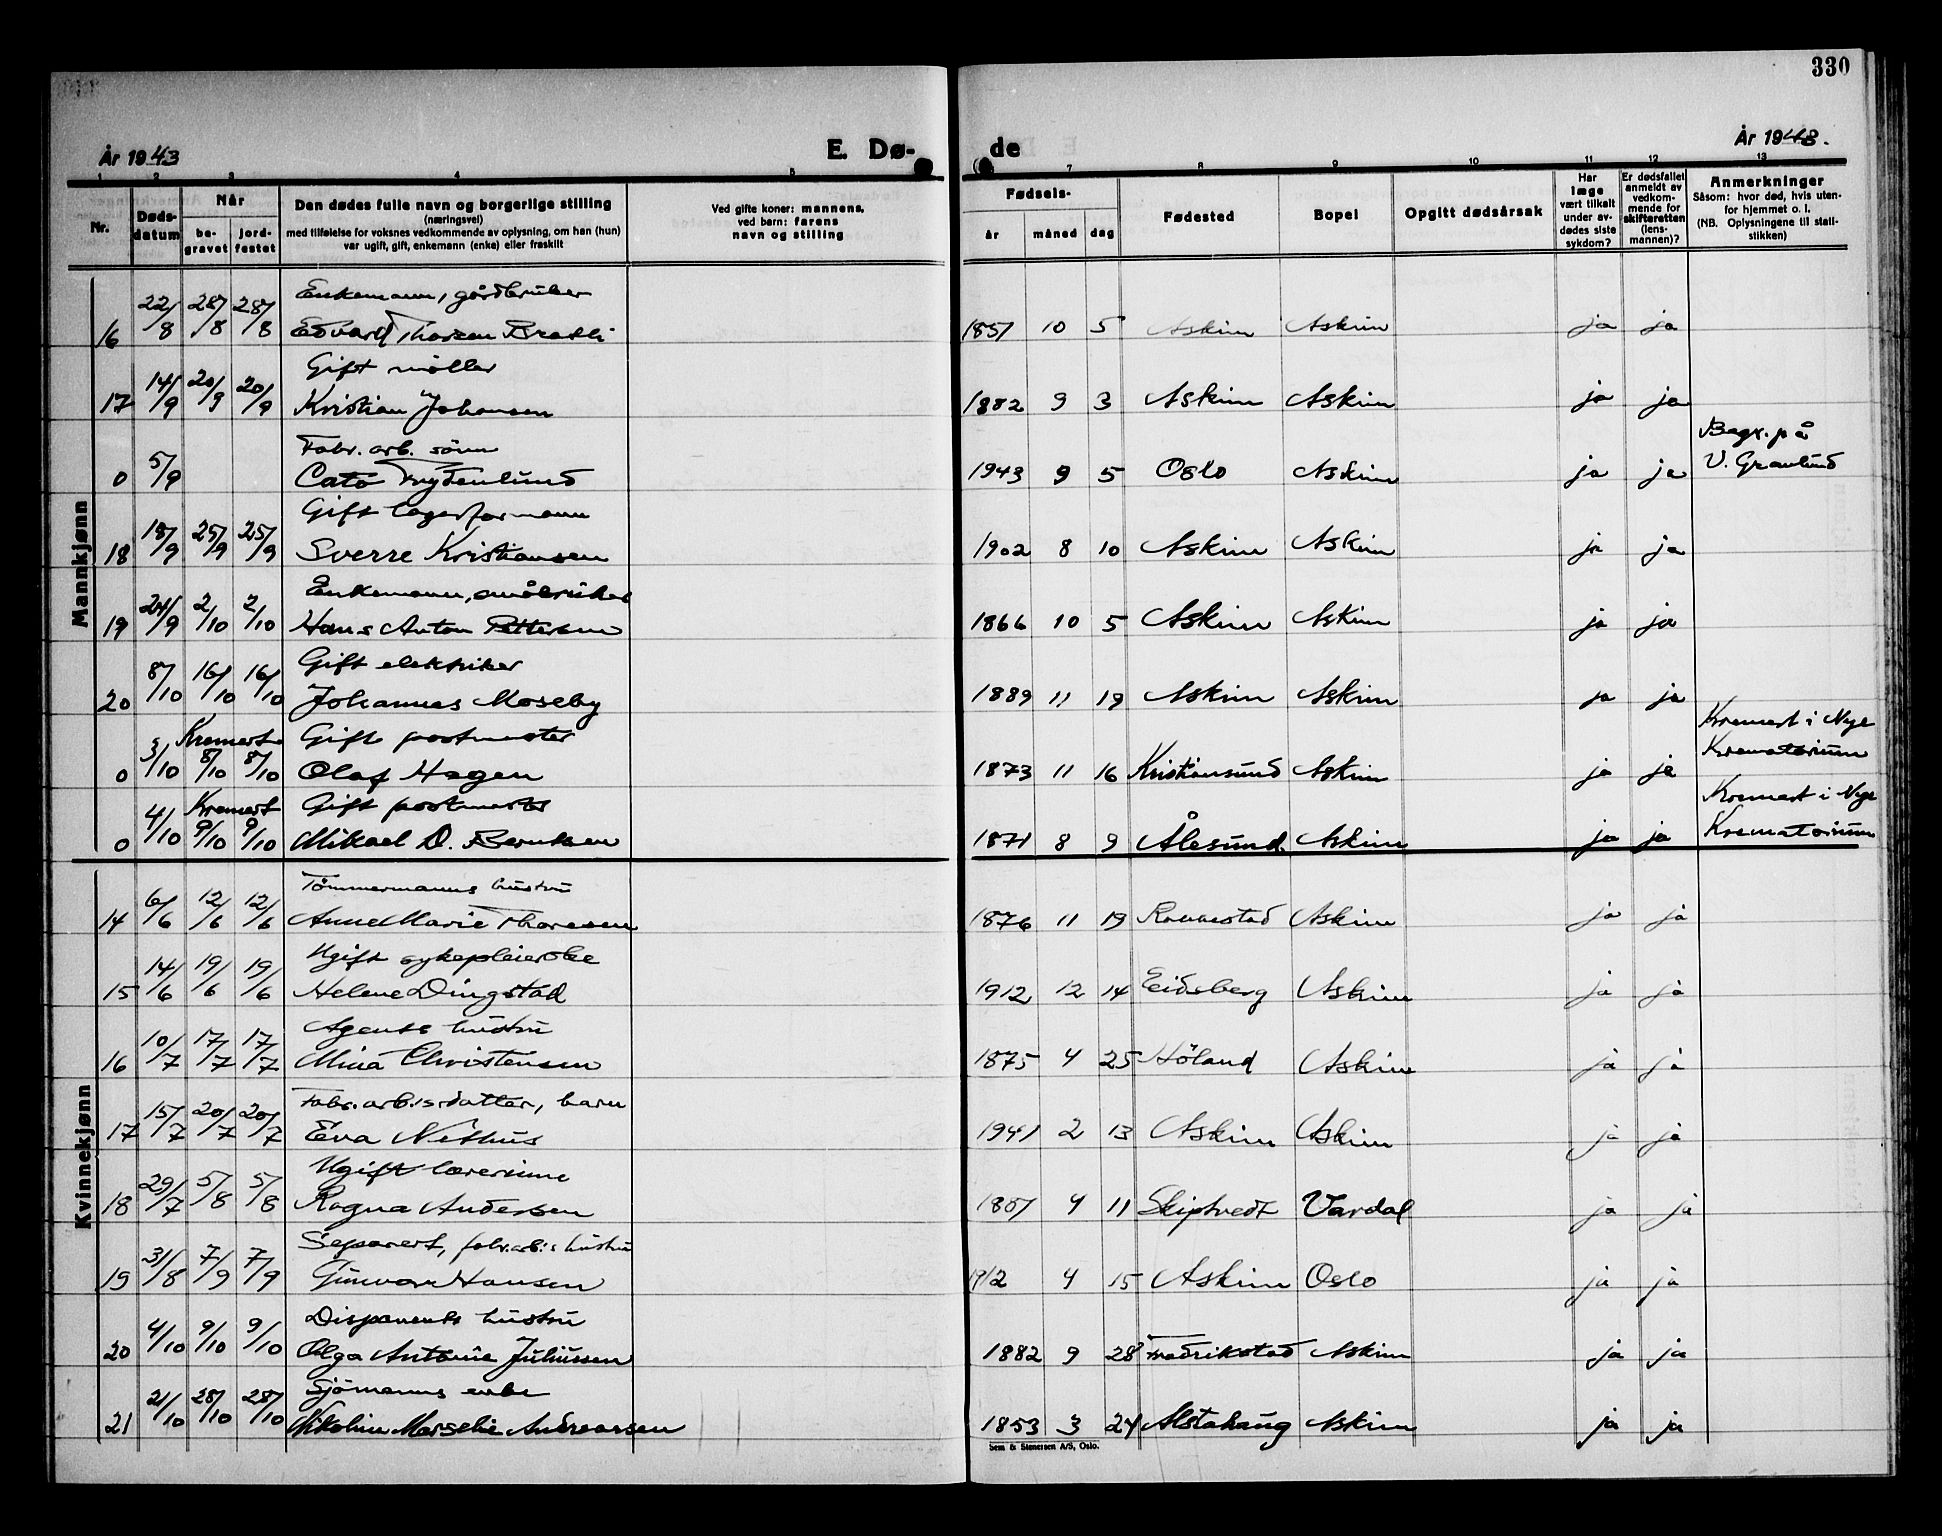 330
År 1943 E. Dø- de År 1943.
1 2 3 4 5 7 8 9 10 11 12 13
Nr. Døds-datum Når be-gravet jord-festet Den dødes fulle navn og borgerlige stilling (næringsvei) med tilføielse for voksnes vedkommende av oplysning, om han (hun) var ugift, gift, enkemann (enke) eller fraskilt Ved gifte koner: mannens, ved barn: farens navn og stilling Fødsels- år måned dag Fødested Bopel Opgitt dødsårsak Har læge vært tilkalt under av-dødes siste sykdom? Er dødsfallet anmeldt av vedkom-mende for skifteretten (lens-mannen)? Anmerkninger Såsom: hvor død, hvis uten-for hjemmet o. l. (NB. Oplysningene til stati-stikken)
Mannkjønn
Enkemann, gårdbruker
16 22/8 28/8 28/8 Edvard Thorsen Bratli 1851 10 5 Askim Askim ja ja
Gift møller
17 14/9 20/9 20/9 Kristian Johansen 1882 9 3 Askim Askim ja ja
Fabr. arb. sønn Begr. på
0 5/9 Cato Frydenlund 1943 9 5 Oslo Askim ja ja V. Gravlund
Gift lagerformann
18 18/9 25/9 25/9 Sverre Kristiansen 1902 8 10 Askim Askim ja ja
Enkemann, småbruker
19 24/9 2/10 2/10 Hans Anton Pettersen 1866 10 5 Askim Askim ja ja
Gift elektriker
20 8/10 16/10 16/10 Johannes Moseby 1889 11 19 Askim Askim ja ja
Kremert Gift postmester Kremert i Nye
0 3/10 8/10 8/10 Olaf Hagen 1873 11 16 Kristiansund Askim ja ja Krematorium
Kremert Gift postmester Kremert i Nye
0 4/10 9/10 9/10 Mikael D. Berntsen 1871 8 9 Ålesund Askim ja ja Krematorium
Kvinnekjønn
Tømmermanns hustru
14 6/6 12/6 12/6 Anne Marie Thoresen 1876 11 19 Askim ja ja
Ugift sykepleierske
15 14/6 19/6 19/6 Helene Dingstad 1912 12 14 Eidsberg Askim ja ja
Agents hustru
16 10/7 17/7 17/7 Mina Christensen 1875 4 25 Höland Askim ja ja
Fabr. arb.s datter, barn
17 15/7 20/7 20/7 Eva 1941 2 13 Askim Askim ja ja
Ugift lærerinne
18 29/7 5/8 5/8 Ragna Andersen 4 11 Skiptvedt Vardal ja ja
Separert, fabr.arb.s hustru
19 31/8 7/9 7/9 Gunvor Hansen 1912 4 15 Askim Oslo ja ja
Disponents hustru
20 4/10 9/10 9/10 Olga Antonie Juliussen 1882 9 28 Fredrikstad Askim ja ja
Sjömanns enke
21 21/10 28/10 28/10 Nikoline Marselie Andreassen 1853 3 24 Alstahaug Askim ja ja
Sem & Stenersen A/S, Oslo.